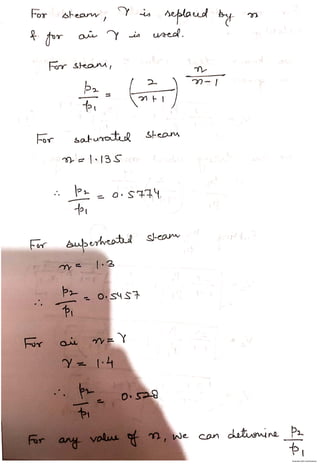 For steam, γ is replaced by n
& for air γ is used.
For steam,
p₂/p₁ = (2/(n+1))^(n/(n-1))
For saturated steam
n = 1.135
∴ p₂/p₁ = 0.5774
For superheated steam
n = 1.3
∴ p₂/p₁ = 0.5457
For air n = γ
γ = 1.4
∴ p₂/p₁ = 0.528
For any value of n, we can determine p₂/p₁